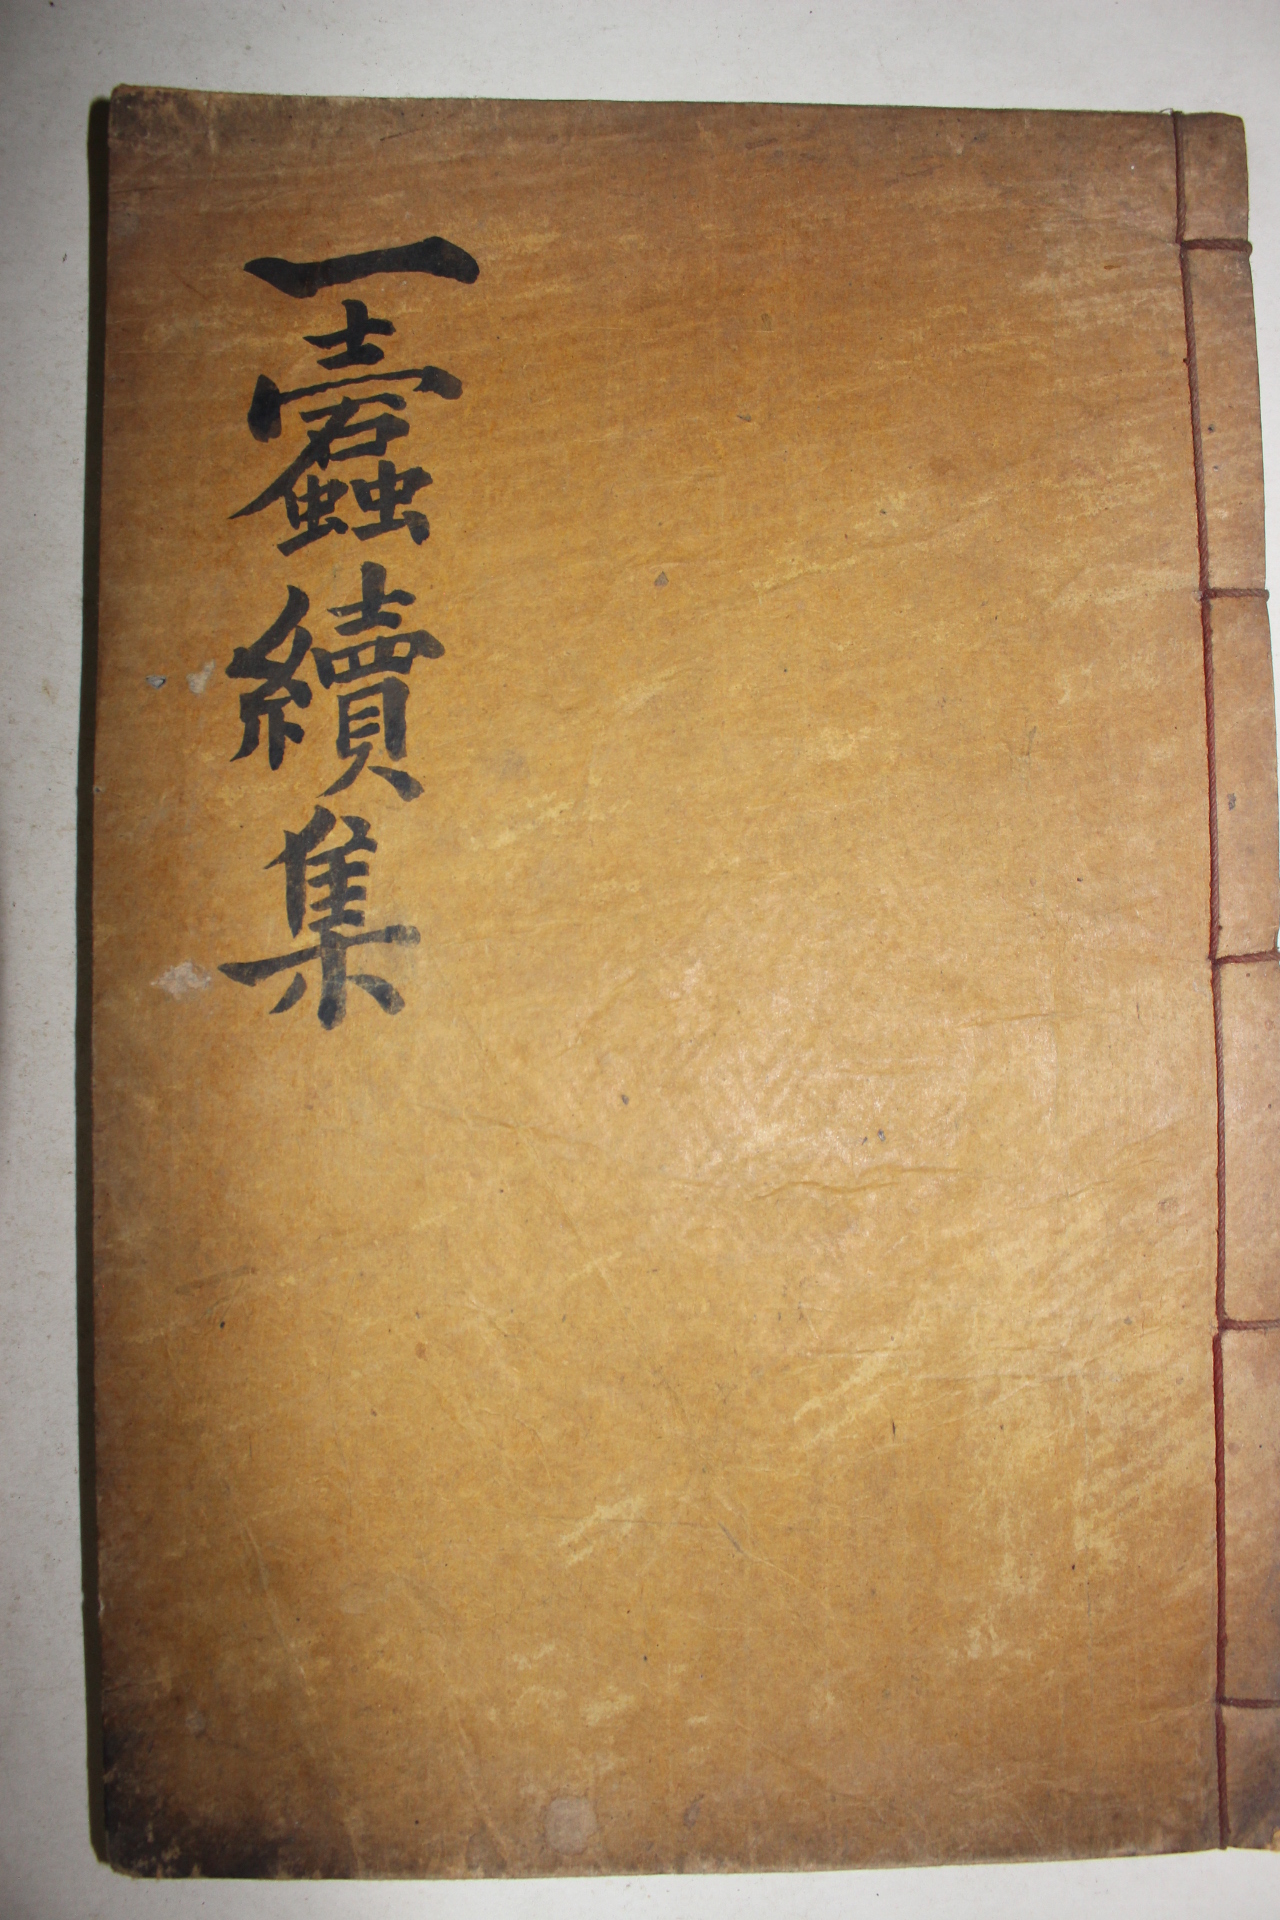 一蠹續集